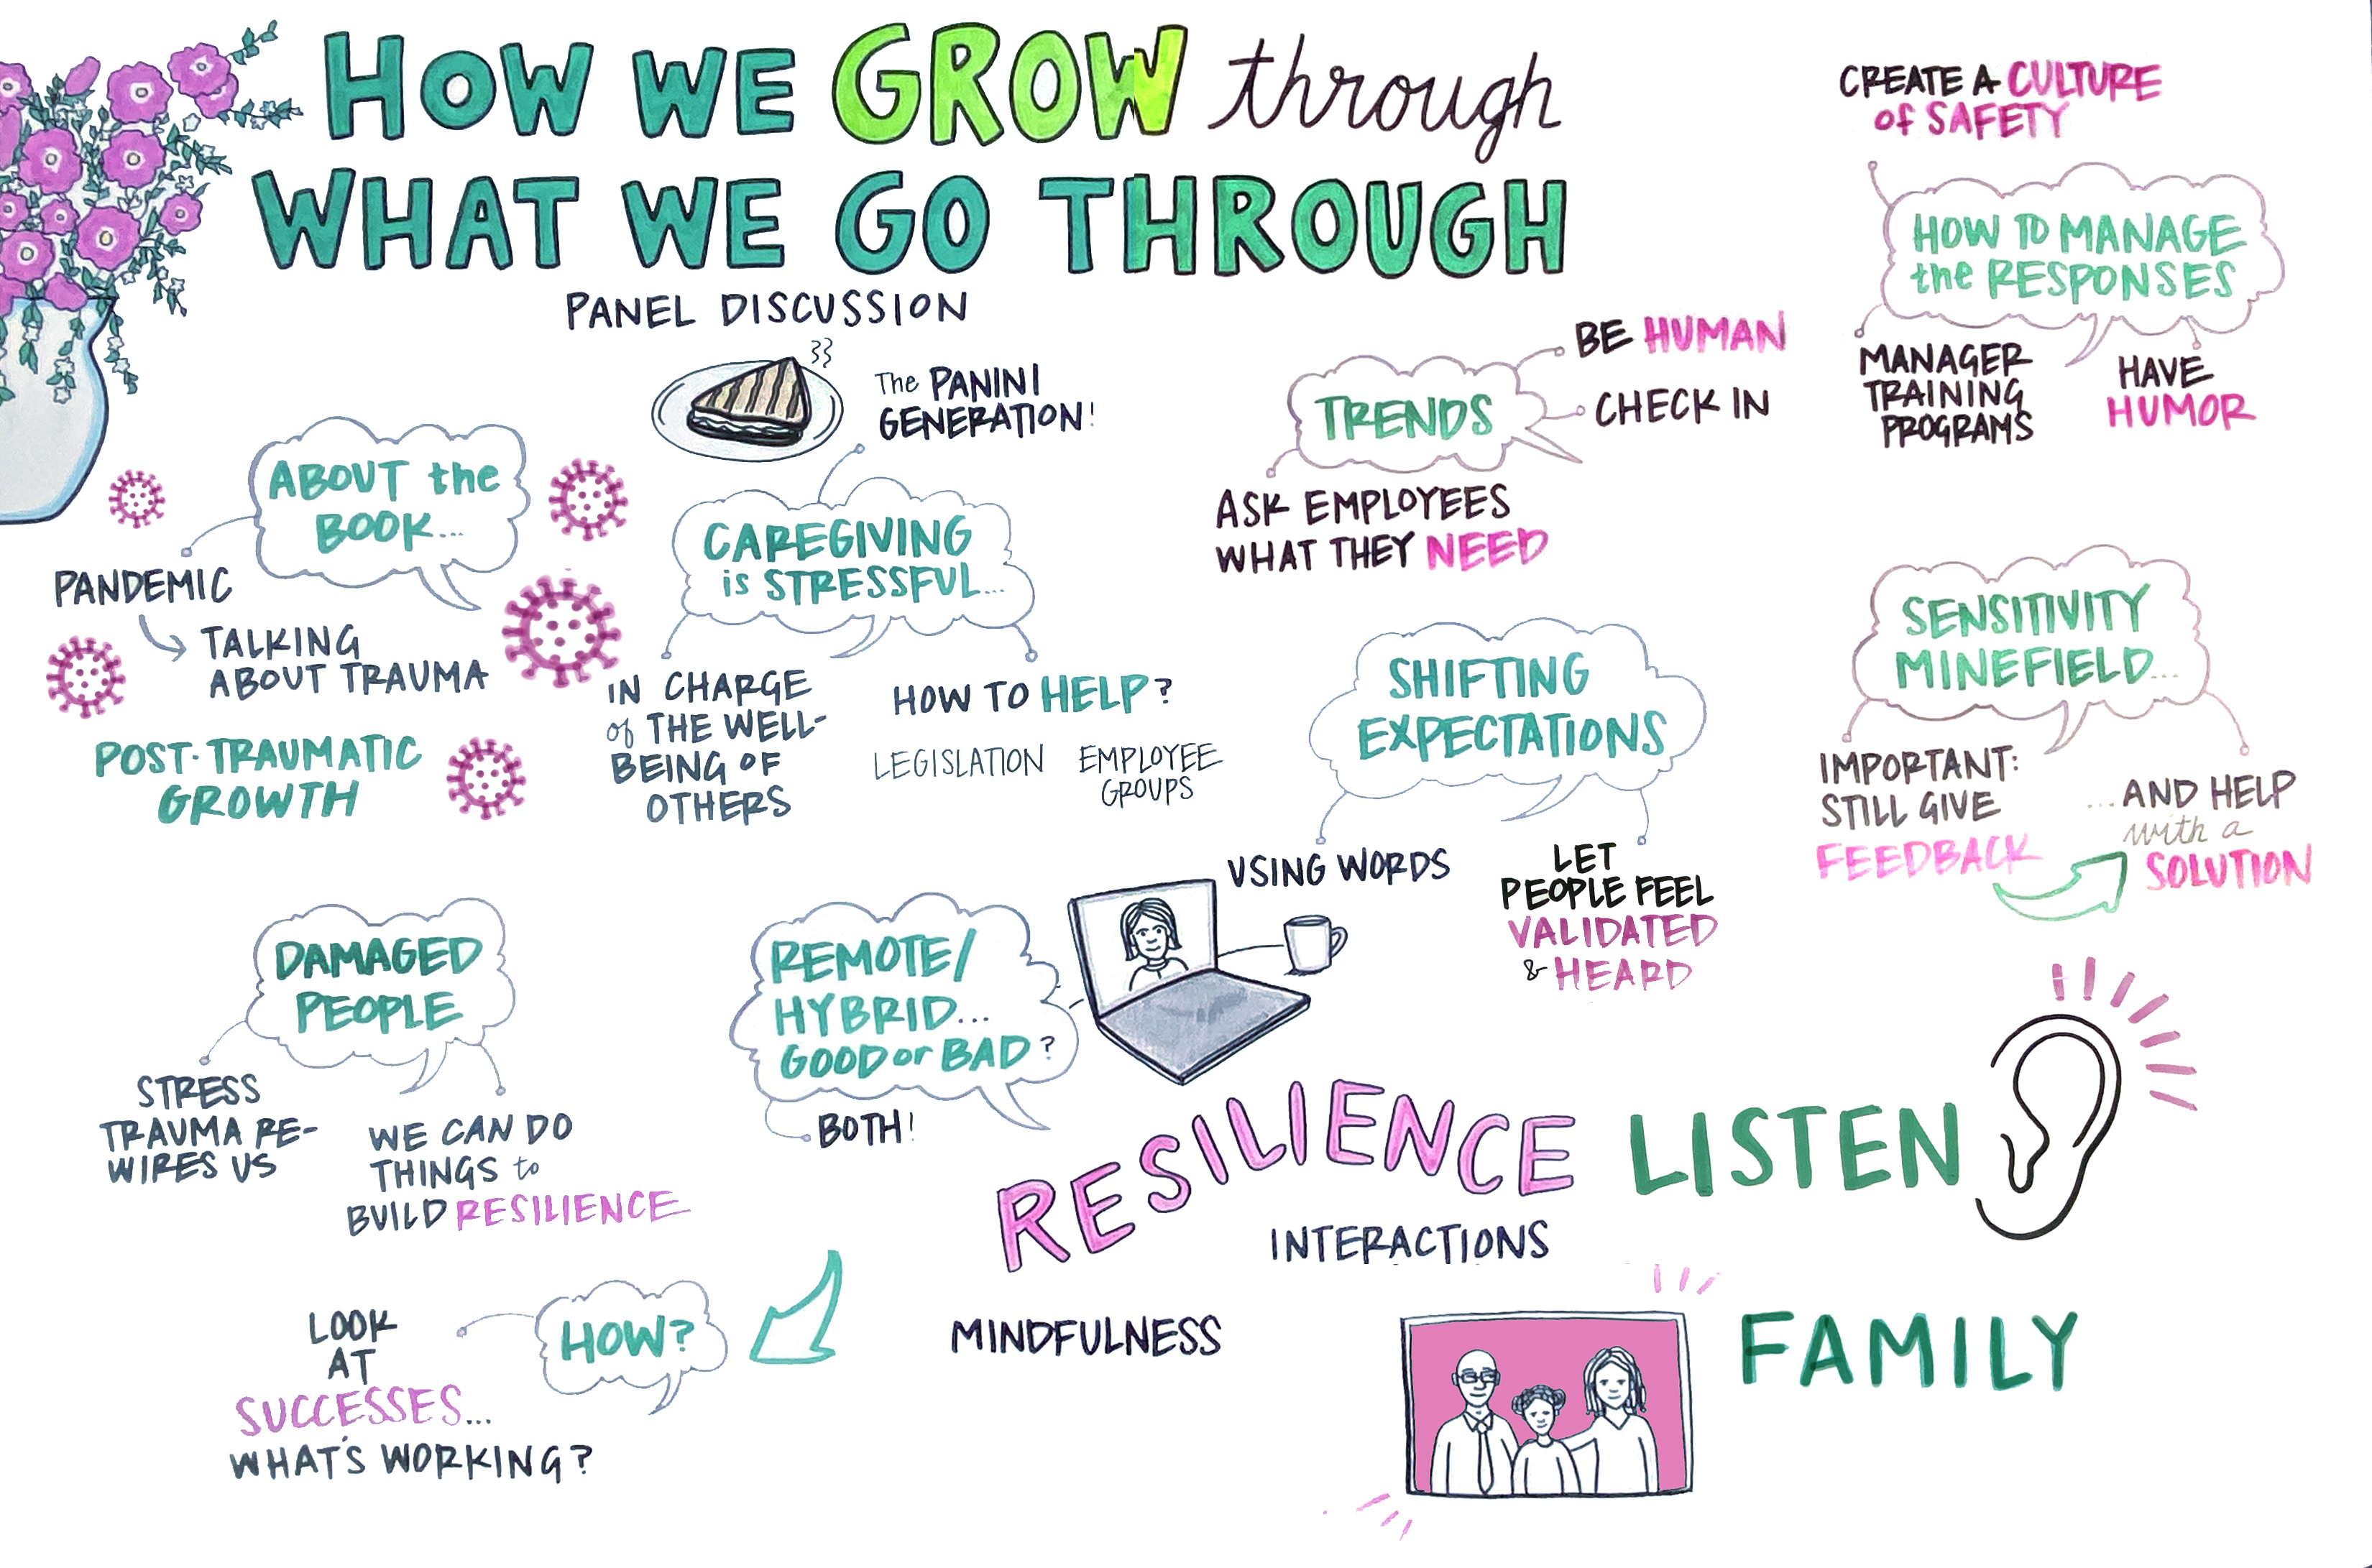 HOW WE GROW through
WHAT WE GO THROUGH
PANEL DISCUSSION
The PANINI
GENERATION!
ABOUT the
BOOK...
PANDEMIC
TALKING
ABOUT TRAUMA
POST-TRAUMATIC
GROWTH
CAREGIVING
is STRESSFUL...
IN CHARGE
of THE WELL-
BEING OF
OTHERS
HOW TO HELP?
LEGISLATION
EMPLOYEE
GROUPS
TRENDS
BE HUMAN
CHECK IN
ASK EMPLOYEES
WHAT THEY NEED
CREATE A CULTURE
of SAFETY
HOW TO MANAGE
the RESPONSES
MANAGER
TRAINING
PROGRAMS
HAVE
HUMOR
SHIFTING
EXPECTATIONS
USING WORDS
LET
PEOPLE FEEL
VALIDATED
& HEARD
SENSITIVITY
MINEFIELD...
IMPORTANT:
STILL GIVE
FEEDBACK
...AND HELP
with a
SOLUTION
DAMAGED
PEOPLE
STRESS
TRAUMA RE-
WIRES US
WE CAN DO
THINGS to
BUILD RESILIENCE
REMOTE/
HYBRID...
GOOD or BAD?
BOTH!
HOW?
LOOK
AT
SUCCESSES...
WHAT'S WORKING?
RESILIENCE
INTERACTIONS
MINDFULNESS
LISTEN
FAMILY